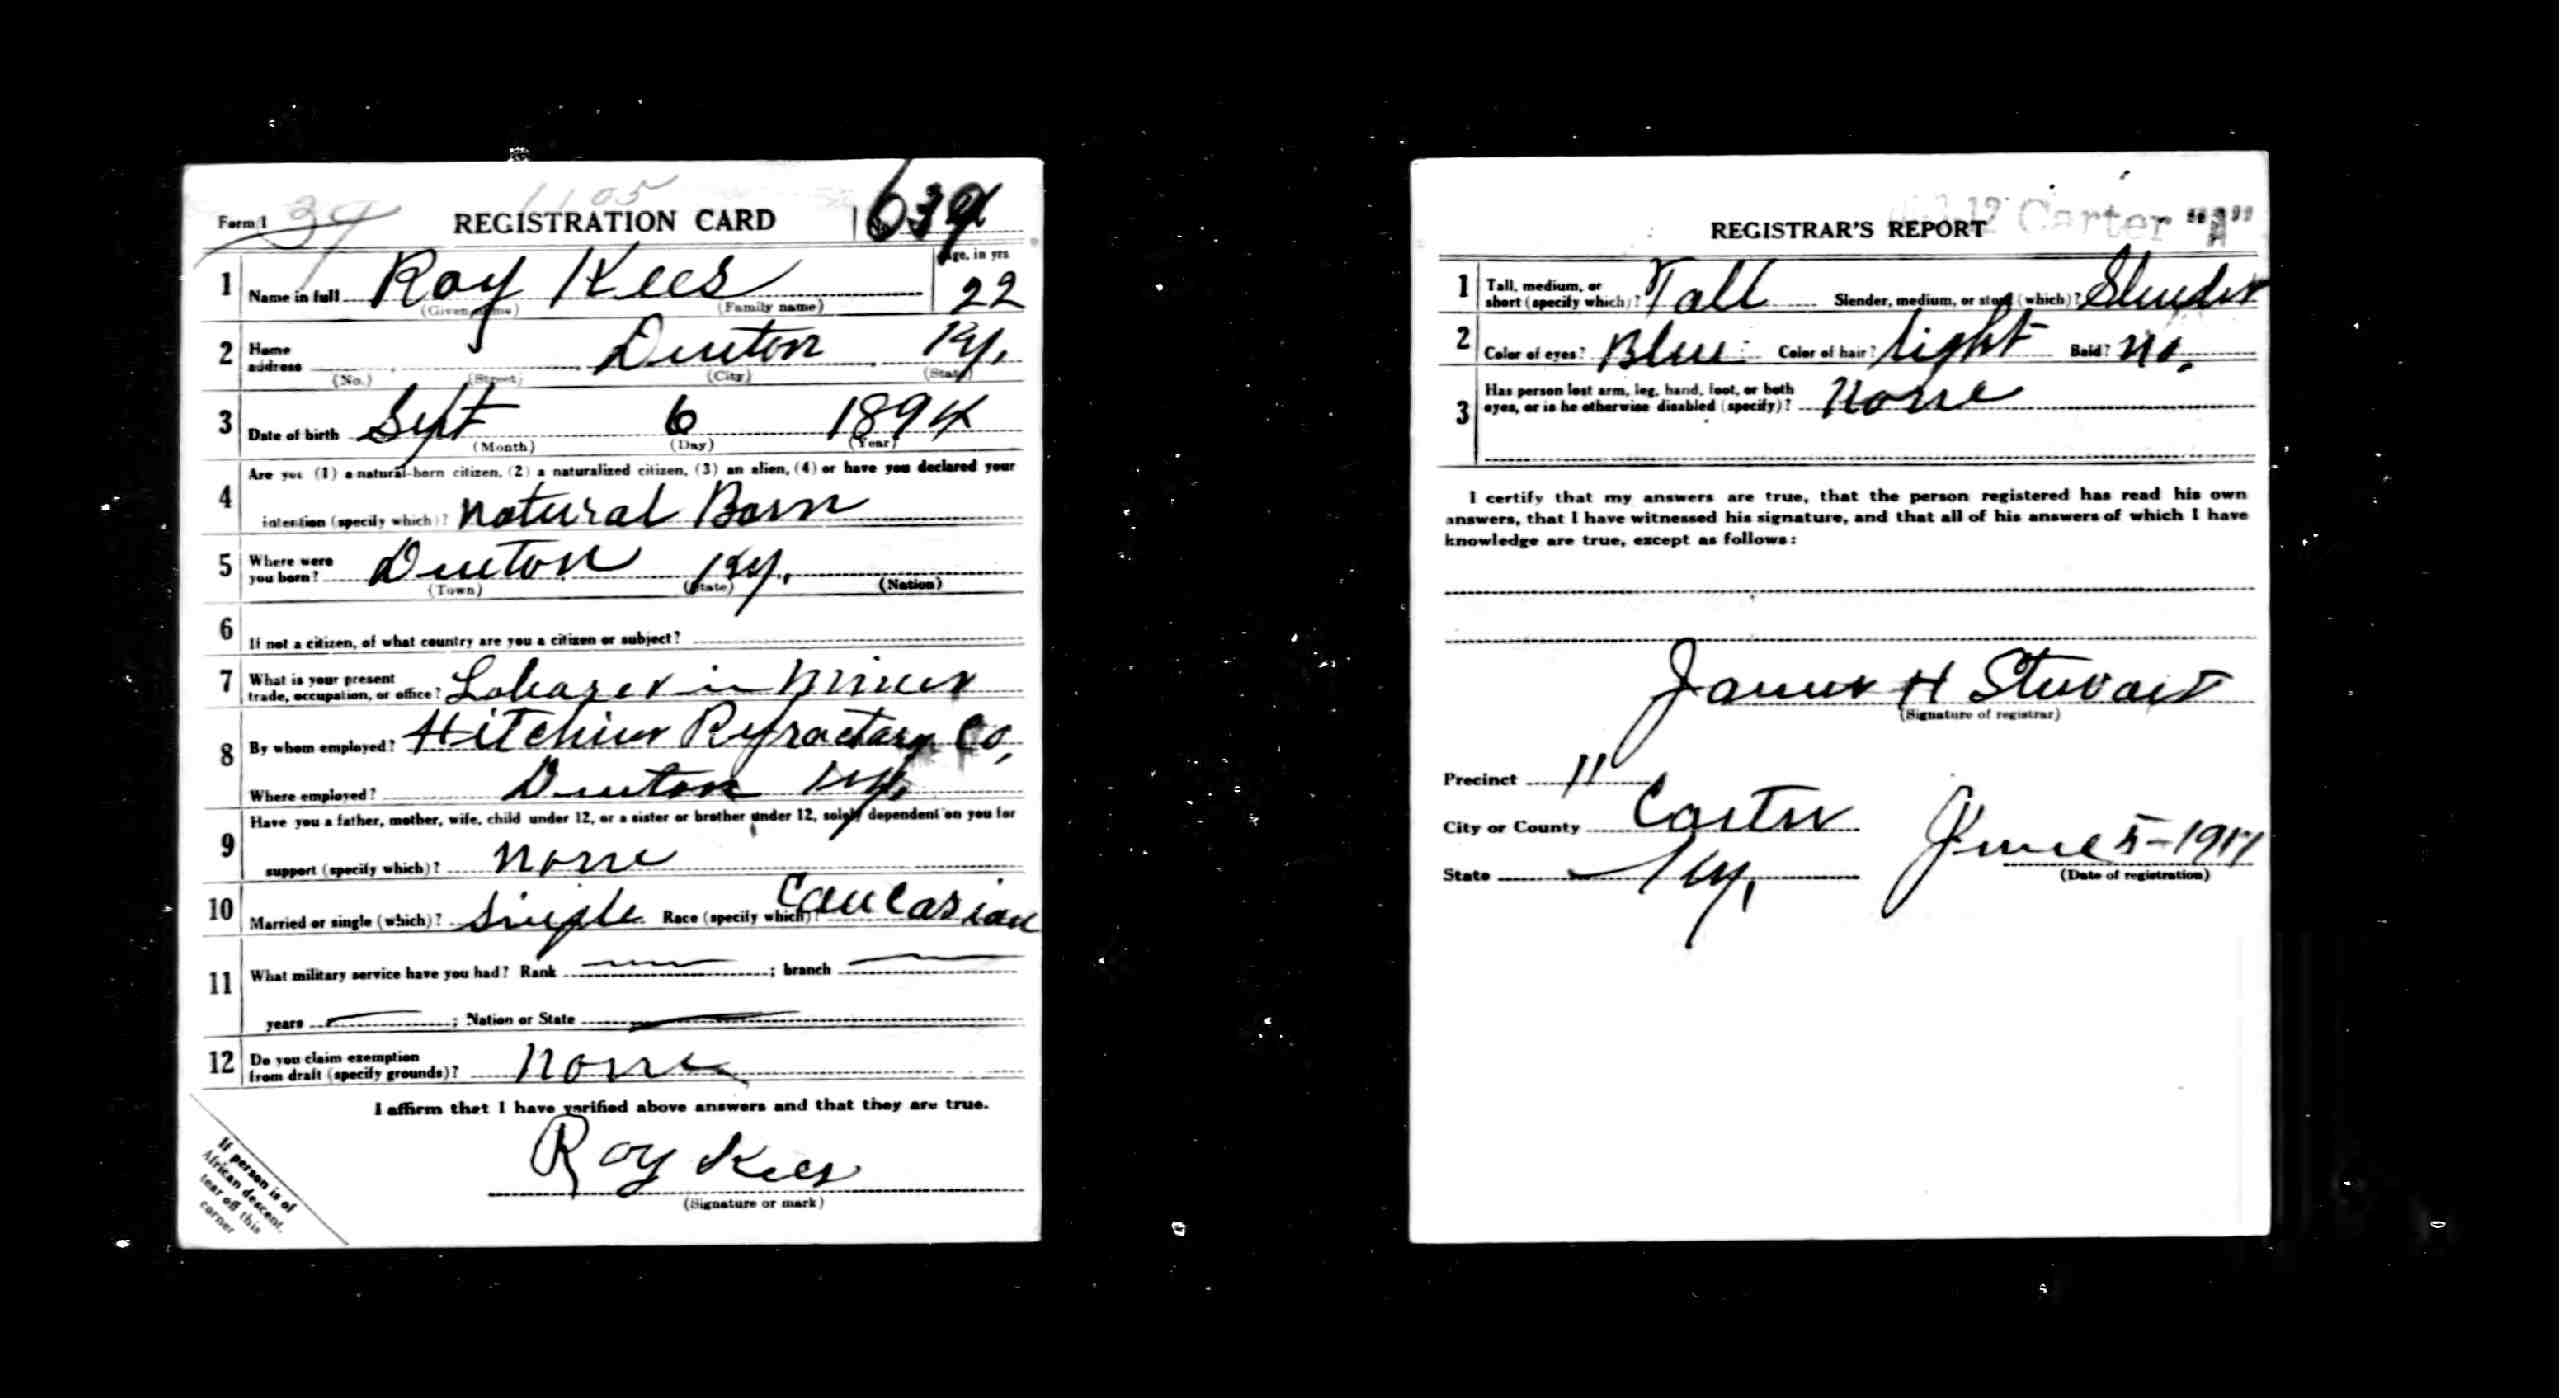 Form 1 34 REGISTRATION CARD 1105
1 Name in full Roy Kees Age, in yrs 22
(Given name) (Family name)
2 Home address Denton Ky.
(No.) (Street) (City) (State)
3 Date of birth Sept 6 1894
(Month) (Day) (Year)
Are you (1) a natural-born citizen, (2) a naturalized citizen, (3) an alien, (4) or have you declared your
4 intention (specify which)? Natural Born
5 Where were you born? Denton Ky.
(Town) (State) (Nation)
6 If not a citizen, of what country are you a citizen or subject?
7 What is your present trade, occupation, or office? Laborer in Mines
8 By whom employed? Hitchins Refractary Co,
Where employed? Denton Ky.
Have you a father, mother, wife, child under 12, or a sister or brother under 12, solely dependent on you for
9 support (specify which)? None
10 Married or single (which)? Single Race (specify which)? Caucasian
11 What military service have you had? Rank ; branch
years ; Nation or State
12 Do you claim exemption from draft (specify grounds)? None
I affirm that I have verified above answers and that they are true.
Roy Kees
(Signature or mark)
If person is of
African descent,
tear off this
corner
REGISTRAR'S REPORT Carter "A"
1 Tall, medium, or short (specify which)? Tall Slender, medium, or stout (which)? Slender
2 Color of eyes? Blue Color of hair? Light Bald? No.
3 Has person lost arm, leg, hand, foot, or both
eyes, or is he otherwise disabled (specify)? None
I certify that my answers are true, that the person registered has read his own
answers, that I have witnessed his signature, and that all of his answers of which I have
knowledge are true, except as follows:
James H Stuvart
(Signature of registrar)
Precinct 11
City or County Carter
State Ky. June 5-1917
(Date of registration)